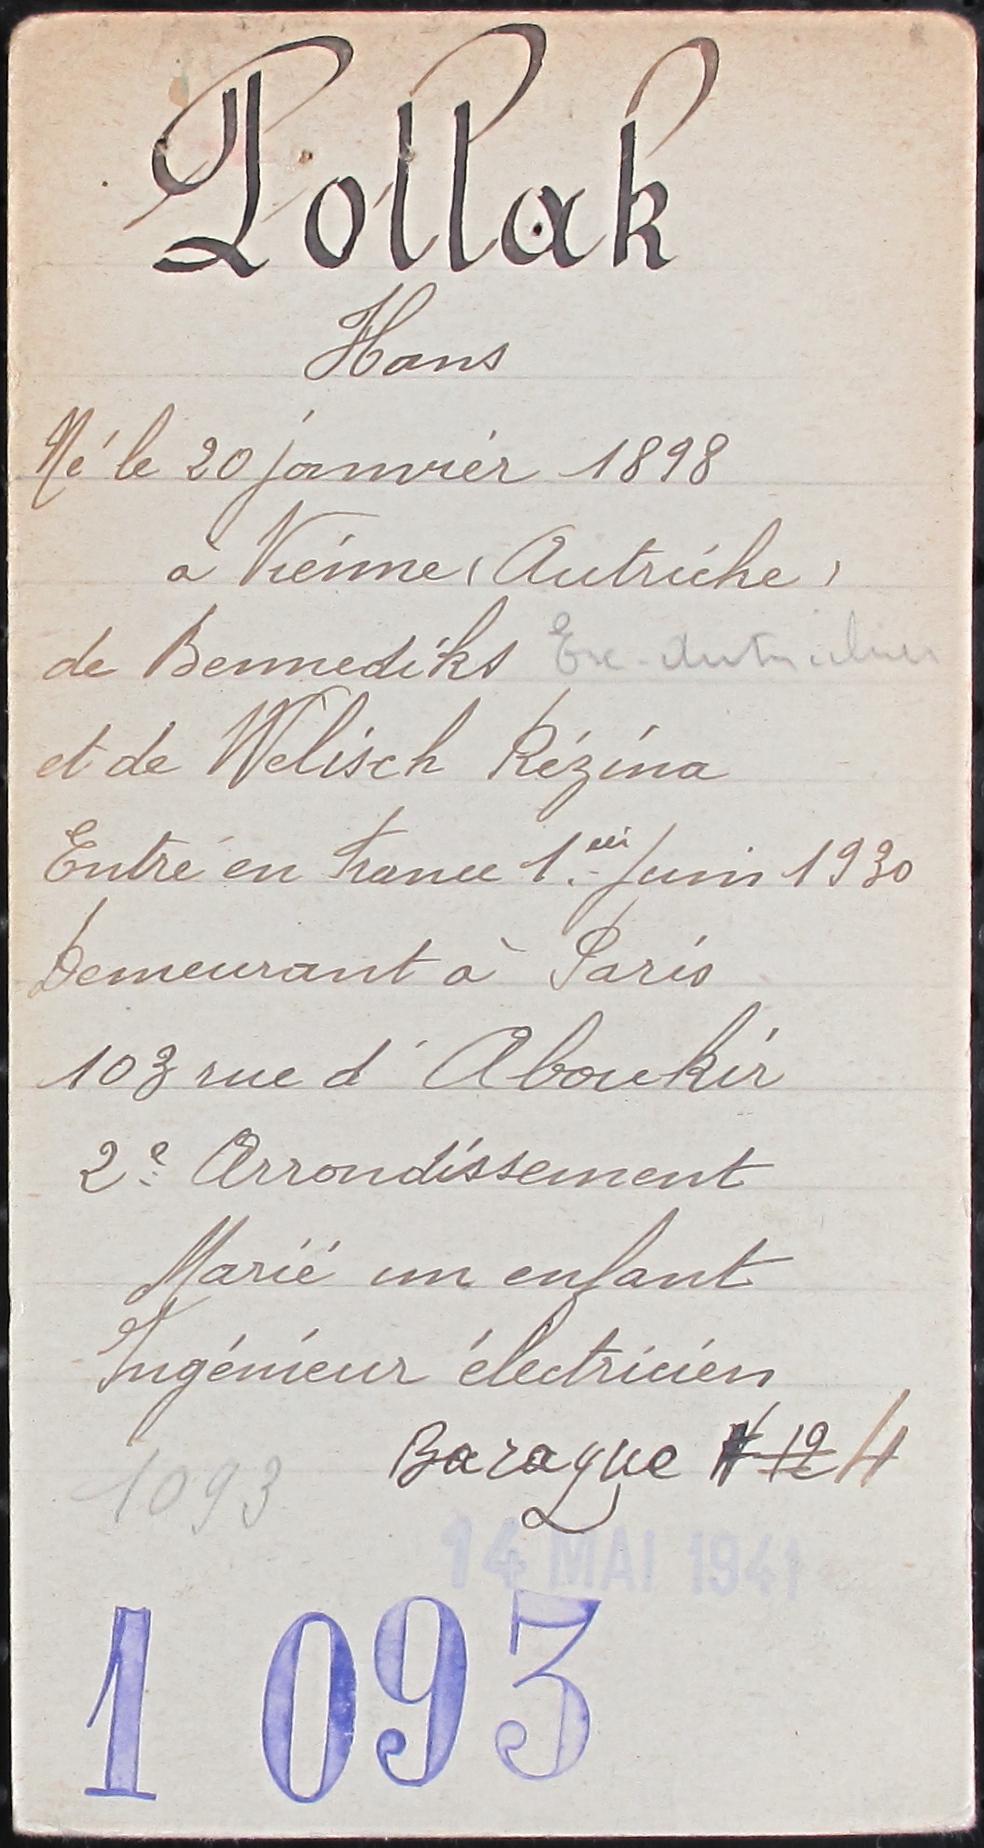 Pollak
Hans
Né le 20 janvier 1898
à Vienne (Autriche)
de Bennediks Ex-Autrichien
et de Welisch Rézina
Entré en France 1er Juin 1930
Demeurant à Paris
103 rue d'Aboukir
2e Arrondissement
Marié un enfant
Ingénieur électricien
Baraque 12 4
1093
14 MAI 1941
1 093